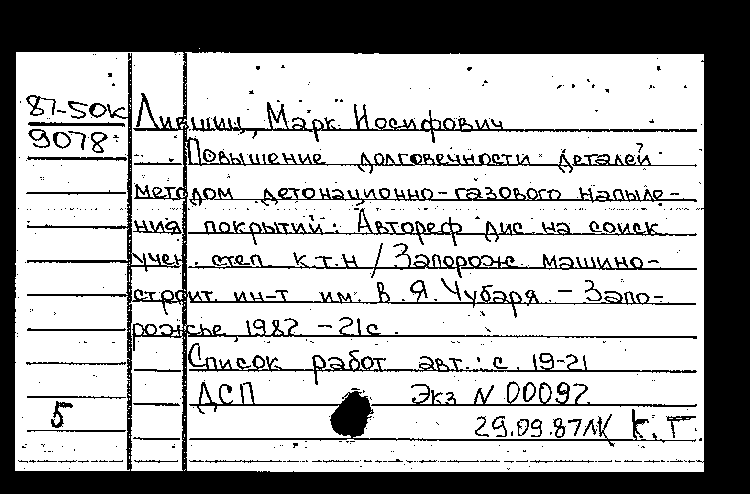 87-50к
9078
Лившиц, Марк Иосифович
Повышение долговечности деталей
методом детонационно-газового напыле-
ния покрытий: Автореф дис на соиск
учен. степ к.т.н / Запорож машино-
строит. ин-т им. В.Я. Чубаря. - Запо-
рожье, 1982. - 21с.
Список работ авт.: с. 19-21
ДСП Экз N 00092
5 29.09.87 К.Г